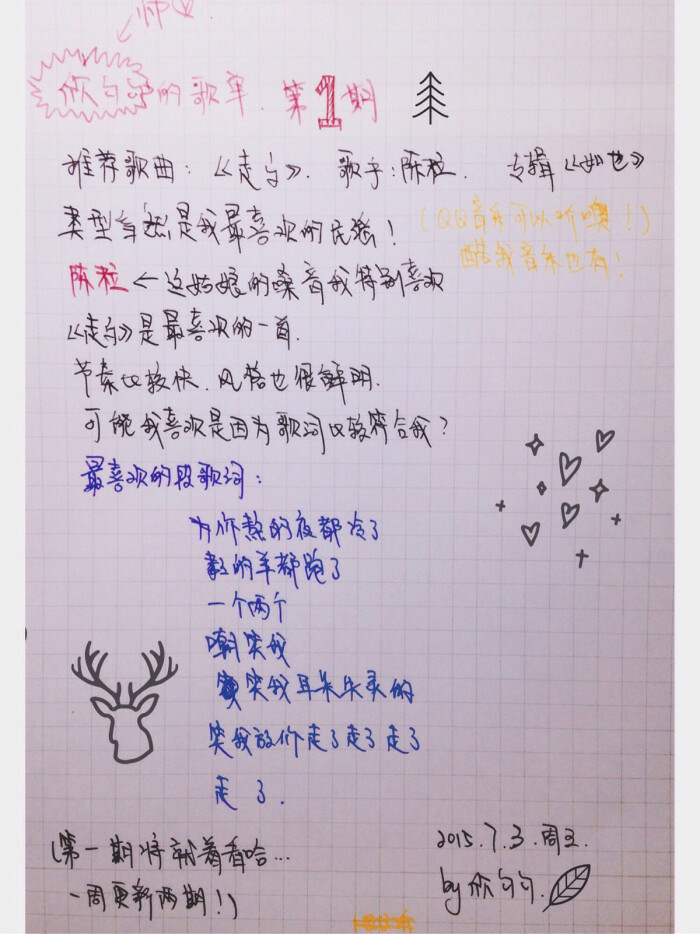 帅气
欣勻勻的歌单.第1期
推荐歌曲:《走马》.歌手:陈粒. 专辑《如也》
类型当然是我最喜欢的民谣!
(QQ音乐可以听噢!)
酷我音乐也有!
陈粒←这姑娘的嗓音我特别喜欢
《走马》是最喜欢的一首.
节奏比较快.风格也很鲜明.
可能我喜欢是因为歌词比较符合我?
最喜欢的段歌词:
为你熬的夜都冷了
数的羊都跑了
一个两个
嘲笑我
笑我耳朵失灵的
笑我放你走了走了走了
走了.
(第一期将就着看哈...
一周更新两期!)
2015.7.3.周五.
by欣勻勻.